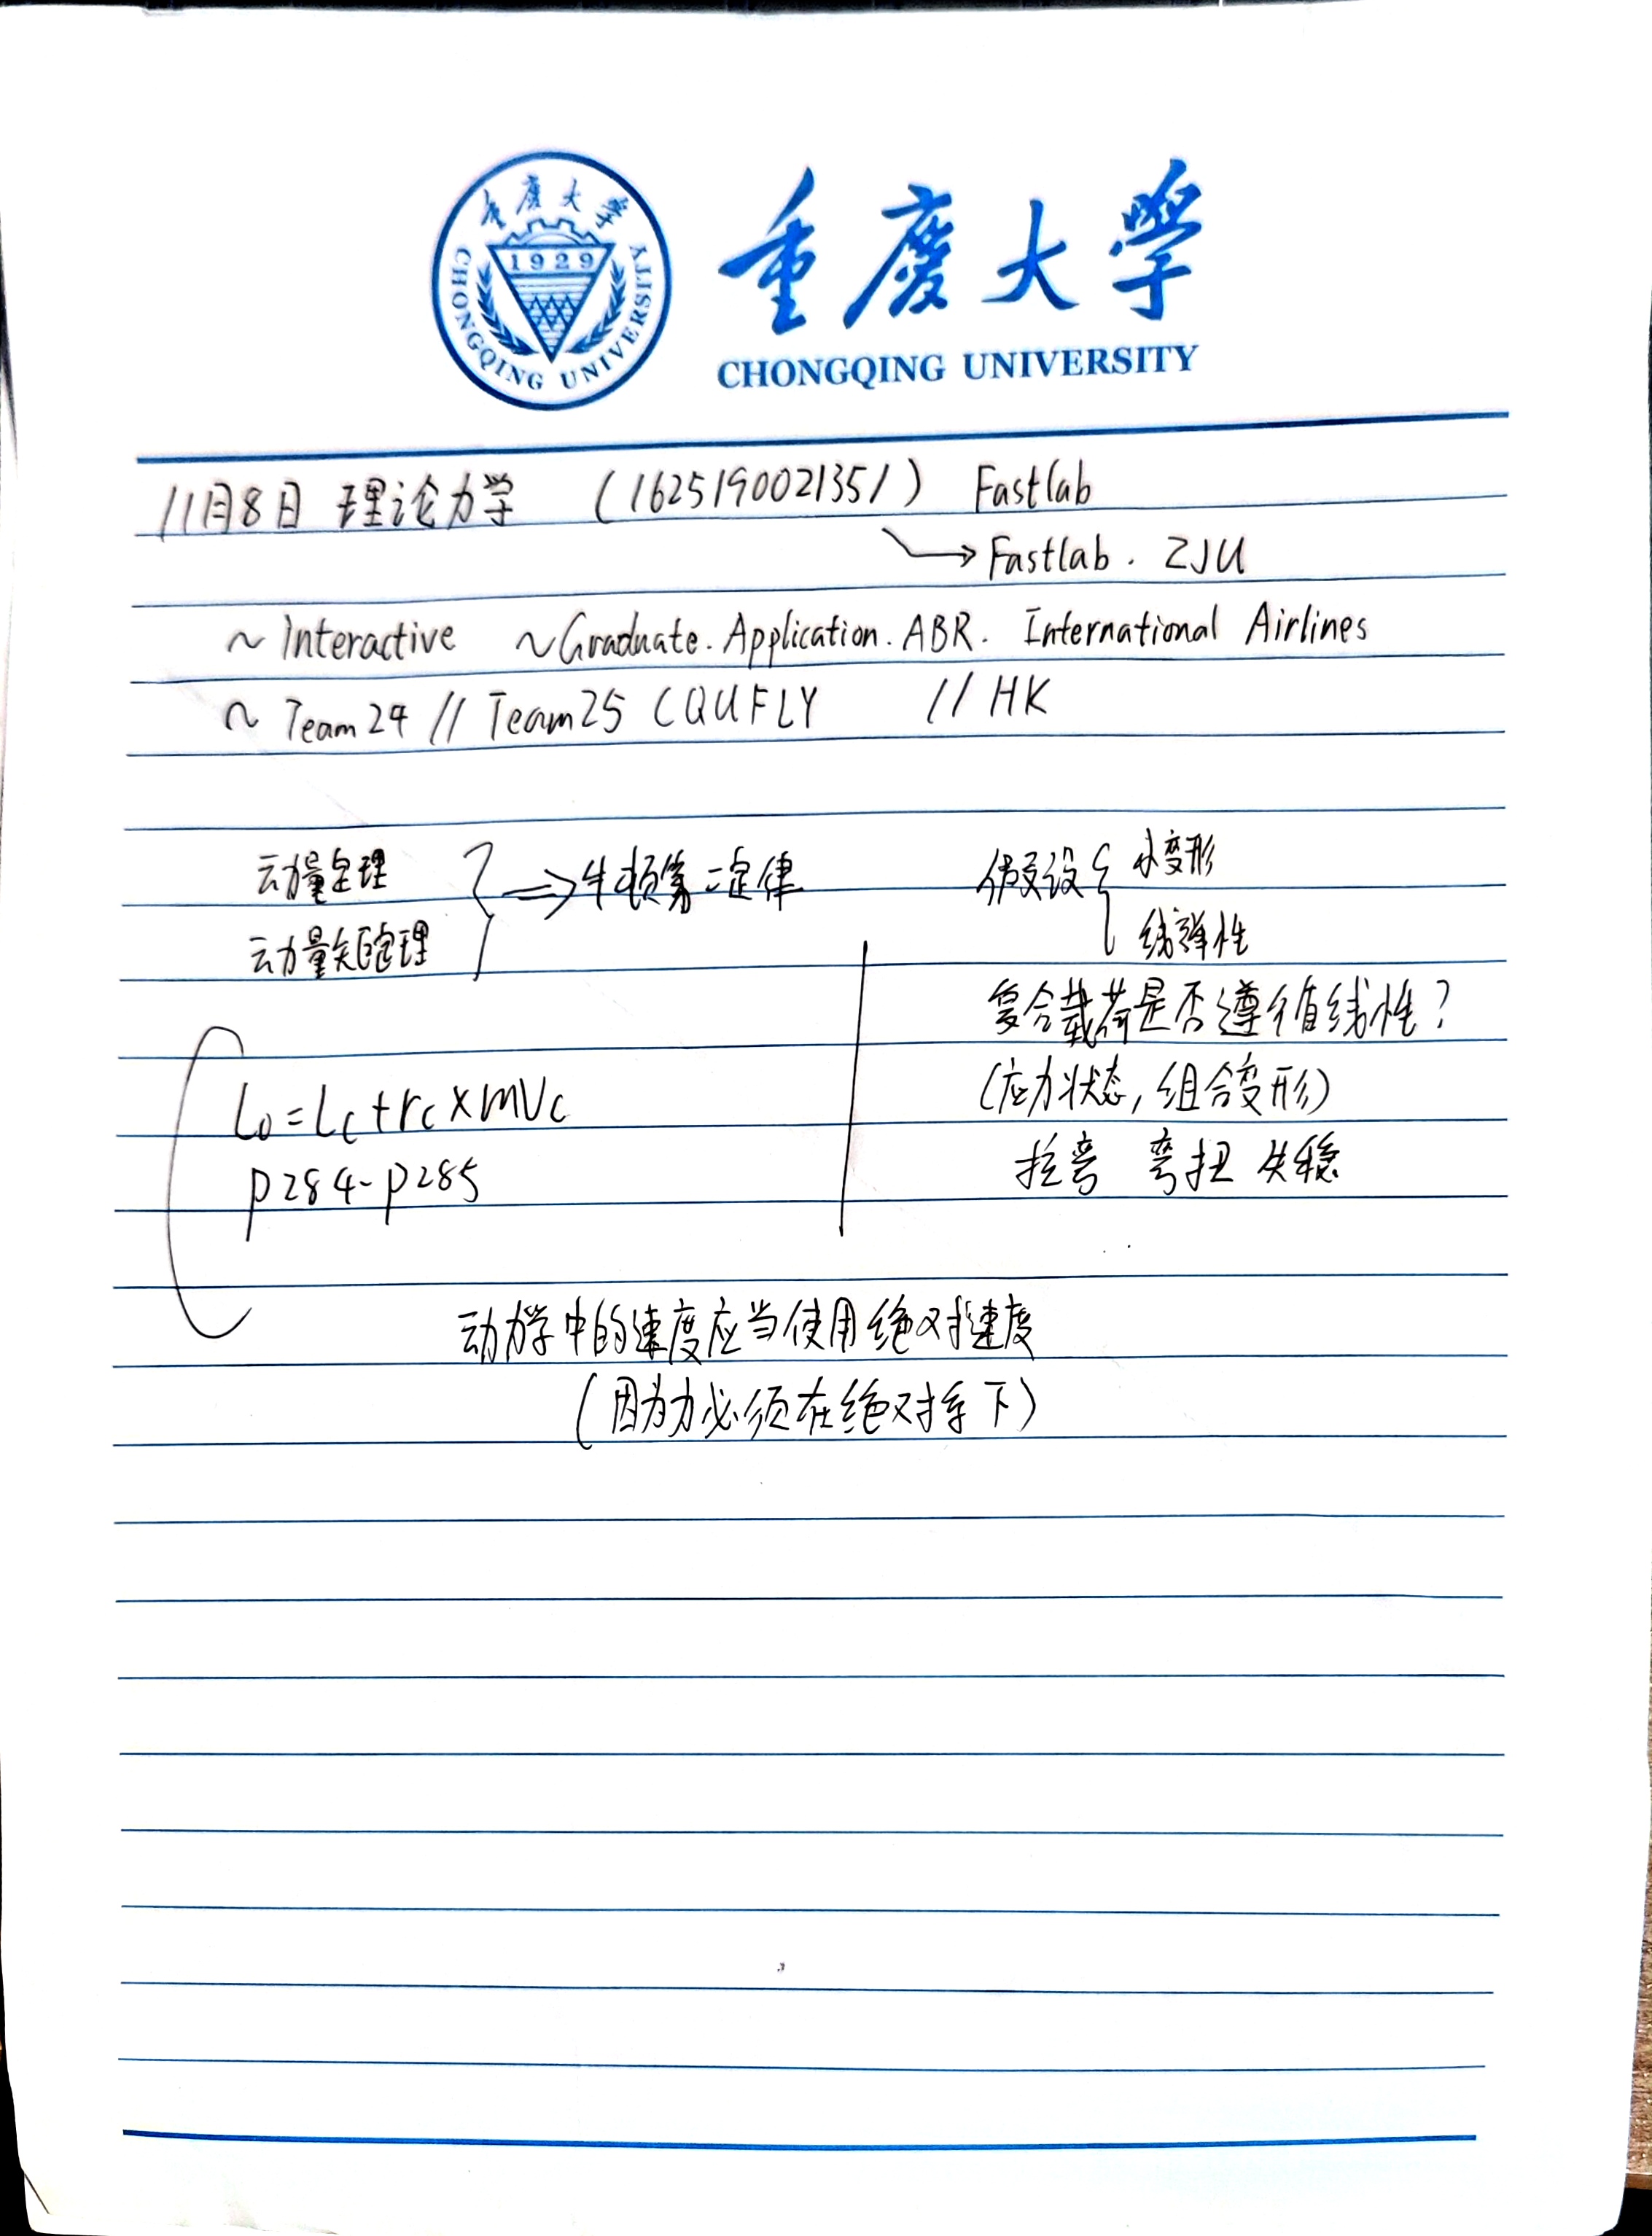 重庆大学
1929
CHONGQING UNIVERSITY
重慶大學
CHONGQING UNIVERSITY
11月8日 理论力学 (1625190021351) Fastlab
→ Fastlab. ZJU
~ Interactive ~Graduate. Application. ABR. International Airlines
~ Team24 // Team25 CQUFLY // HK
动量定理
动量矩定理
} ⇒ 牛顿第二定律
假设 { 小变形
线弹性
复合载荷是否遵循线性?
(应力状态, 组合变形)
拉弯 弯扭 失稳
Lo=Lc+rc×mVc
P284-P285
动力学中的速度应当使用绝对速度
(因为力必须在绝对系下)